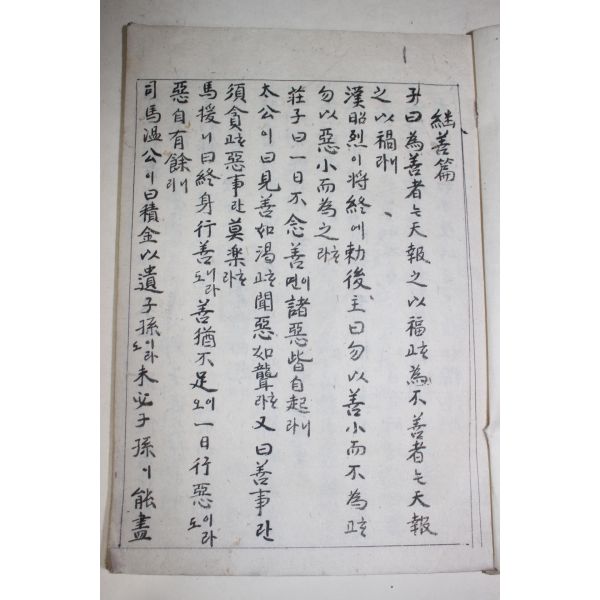 継善篇
子曰為善者는天報之以福ᄒᆞ고為不善者는天報
之以禍니라
漢昭烈이将終에勅後主曰勿以善小而不為ᄒᆞ고
勿以惡小而為之ᄒᆞ라
荘子曰一日不念善이면諸惡皆自起니라
太公이曰見善如渴ᄒᆞ고聞惡如聾ᄒᆞ라又曰善事란
須貪ᄒᆞ고惡事란莫楽ᄒᆞ라
馬援이曰終身行善이라도善猶不足이오一日行惡이라도
惡自有餘니라
司馬温公이曰積金以遺子孫이라도未必子孫이能盡